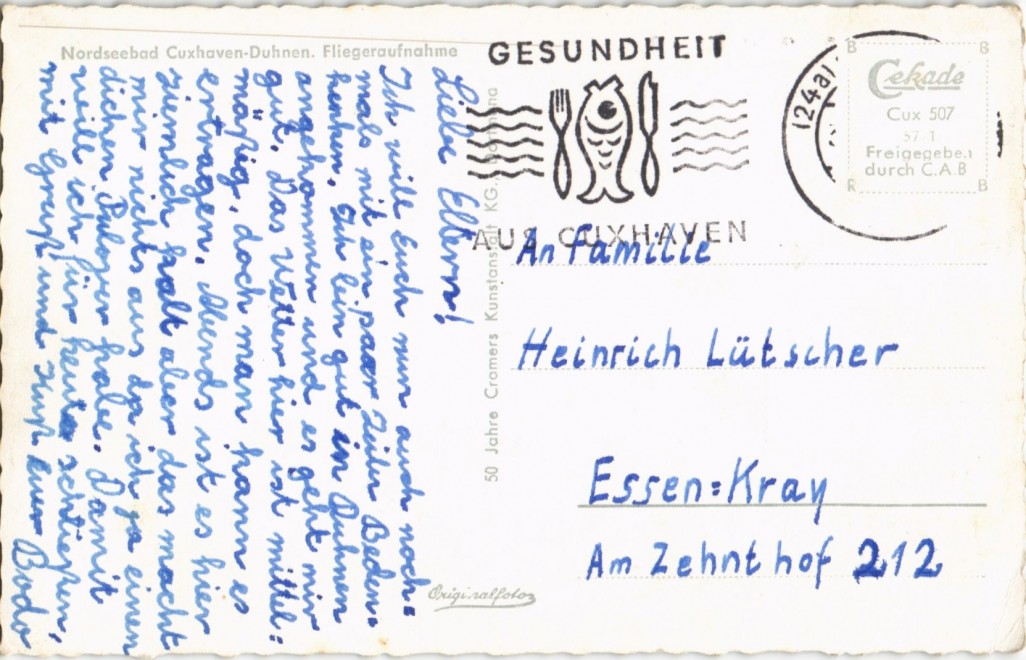 Nordseebad Cuxhaven-Duhnen. Fliegeraufnahme
Liebe Eltern!
Ich will Euch nur auch noch=
mals mit ein paar Zeilen Beden=
henken. Ich bin gut in Duhnen
angekommen und es geht mir
gut. Das Wetter hier ist mittel=
mäßig, doch man kann es
ertragen. Abends ist es hier
ziemlich kalt aber das macht
mir nichts aus da ich ja einen
dicken Pulover habe. Damit
will ich für heute schließen,
mit Gruß und Kuß Euer Bodo
50 Jahre Cramers Kunstanstalt KG.
Originalfotos
GESUNDHEIT
AUS CUXHAVEN
(24a)
Cekade
Cux 507
57 1
Freigegeben
durch C.A.B
B B
R B
An Familie
Heinrich Lütscher
Essen=Kray
Am Zehnthof 212